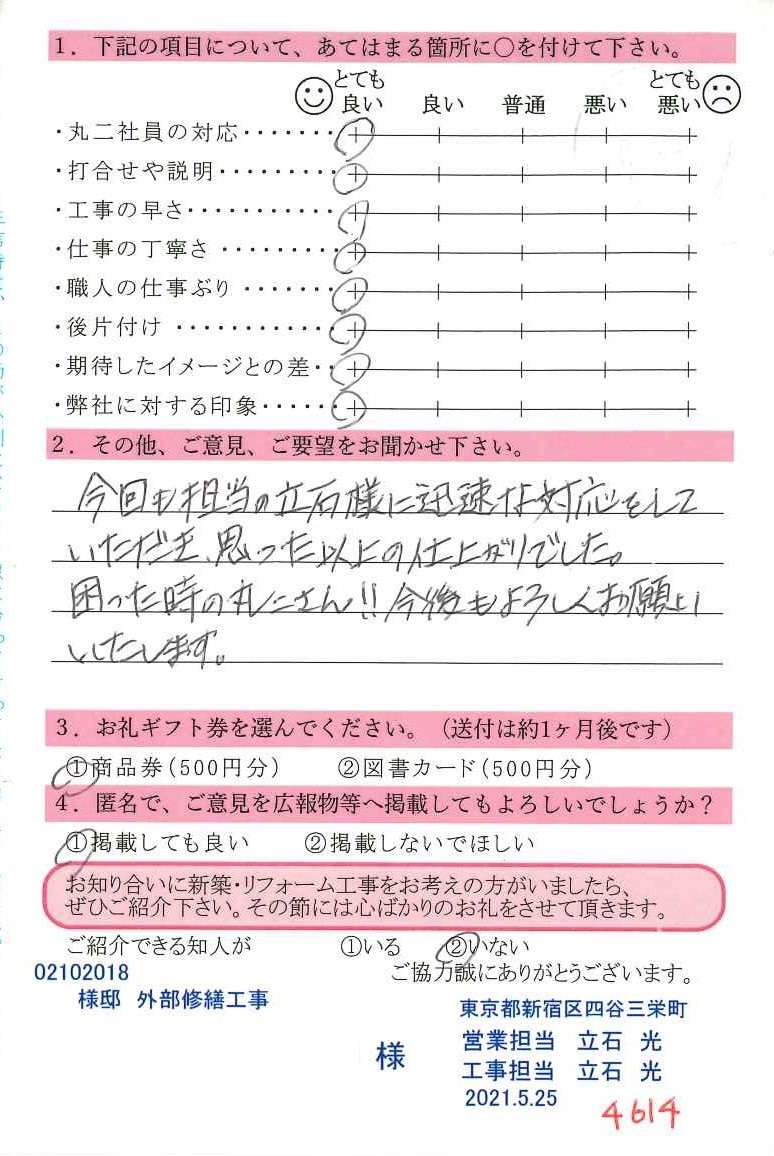 1．下記の項目について、あてはまる箇所に○を付けて下さい。
とても良い　良い　普通　悪い　とても悪い
・丸二社員の対応・・・・・・・
・打合せや説明・・・・・・・・・
・工事の早さ・・・・・・・・・・・
・仕事の丁寧さ・・・・・・・・・
・職人の仕事ぶり・・・・・・・
・後片付け・・・・・・・・・・・・
・期待したイメージとの差・・
・弊社に対する印象・・・・・・
2．その他、ご意見、ご要望をお聞かせ下さい。
今回も担当の立石様に迅速な対応をして
いただき、思った以上の仕上がりでした。
困った時の丸二さん!!今後もよろしくお願い
いたします。
3．お礼ギフト券を選んでください。（送付は約1ヶ月後です）
①商品券（500円分）　②図書カード（500円分）
4．匿名で、ご意見を広報物等へ掲載してもよろしいでしょうか？
①掲載しても良い　②掲載しないでほしい
お知り合いに新築・リフォーム工事をお考えの方がいましたら、
ぜひご紹介下さい。その節には心ばかりのお礼をさせて頂きます。
ご紹介できる知人が　①いる　②いない
ご協力誠にありがとうございます。
02102018
様邸　外部修繕工事
様
東京都新宿区四谷三栄町
営業担当　立石　光
工事担当　立石　光
2021.5.25
4614